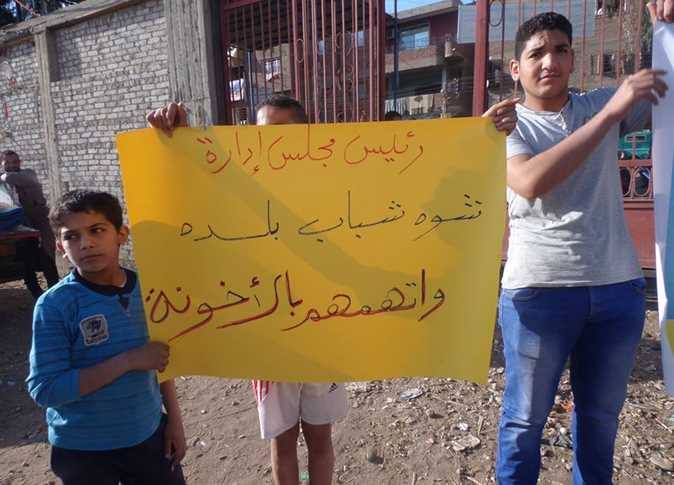 رئيس مجلس إدارة
تشوه شباب بلده
واتهمهم بالأخونة